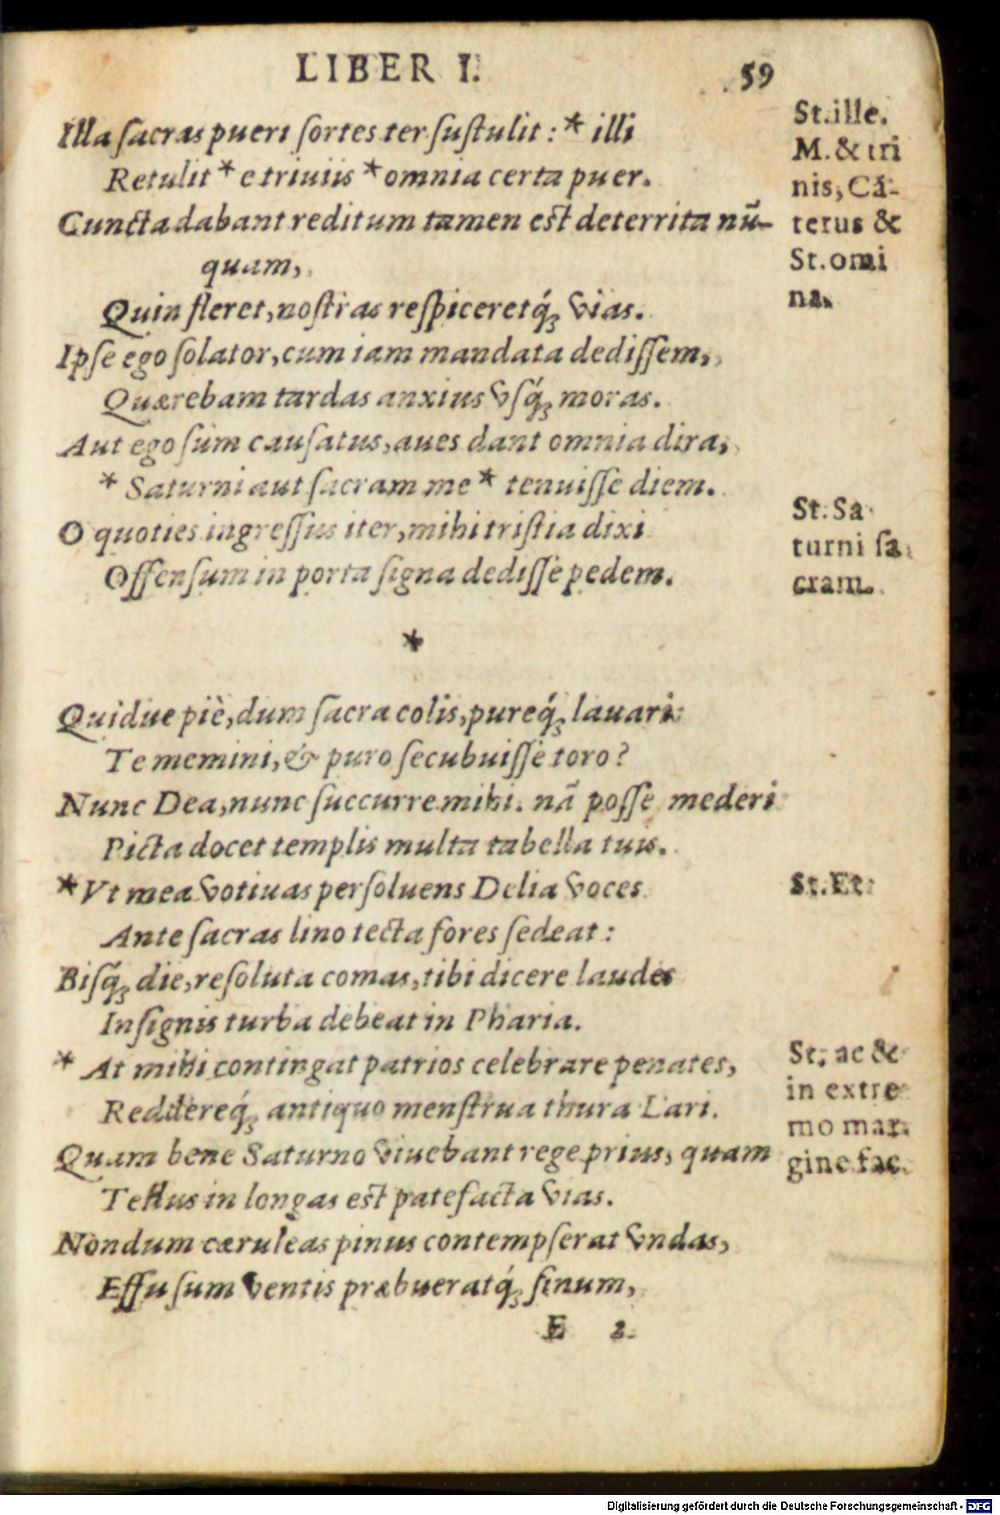 LIBER I.
59
Illa sacras pueri sortes ter sustulit: * illi
Retulit * e triuiis * omnia certa puer.
Cuncta dabant reditum tamen est deterrita nū-
quam,
Quin fleret, nostras respiceretq́; vias.
Ipse ego solator, cum iam mandata dedissem,
Quærebam tardas anxius vsq́; moras.
Aut ego sum causatus, aues dant omnia dira,
* Saturni aut sacram me * tenuisse diem.
O quoties ingressus iter, mihi tristia dixi
Offensum in porta signa dedisse pedem.
*
Quidue piè, dum sacra colis, pureq́; lauari
Te memini, & puro secubuisse toro?
Nunc Dea, nunc succurre mihi. nā posse mederi
Picta docet templis multa tabella tuis.
* Vt mea votiuas persoluens Delia voces
Ante sacras lino tecta fores sedeat:
Bisq́; die, resoluta comas, tibi dicere laudes
Insignis turba debeat in Pharia.
* At mihi contingat patrios celebrare penates,
Reddereq́; antiquo menstrua thura Lari.
Quam bene Saturno viuebant rege prius, quam
Tellus in longas est patefacta vias.
Nondum cæruleas pinus contempserat vndas,
Effusum ventis præbueratq́; sinum,
E 2
St. ille.
M. & tri
niis, Cā-
terus &
St. omi
na.
St. Sa
turni sa
cram.
St. Et
St. ac &
in extre
mo mar.
gine fac.
Digitalisierung gefördert durch die Deutsche Forschungsgemeinschaft - DFG